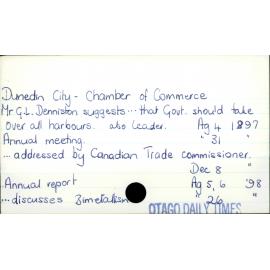 Dunedin City - Chamber of Commerce
Mr G.L. Denniston suggests ... that Govt. should take
over all harbours. also leader. Ag 4 1897
Annual meeting. " 31 "
... addressed by Canadian Trade commissioner.
Dec 8 "
Annual report Ag 5, 6 '98
... discusses Bimetalism " 26 "
OTAGO DAILY TIMES